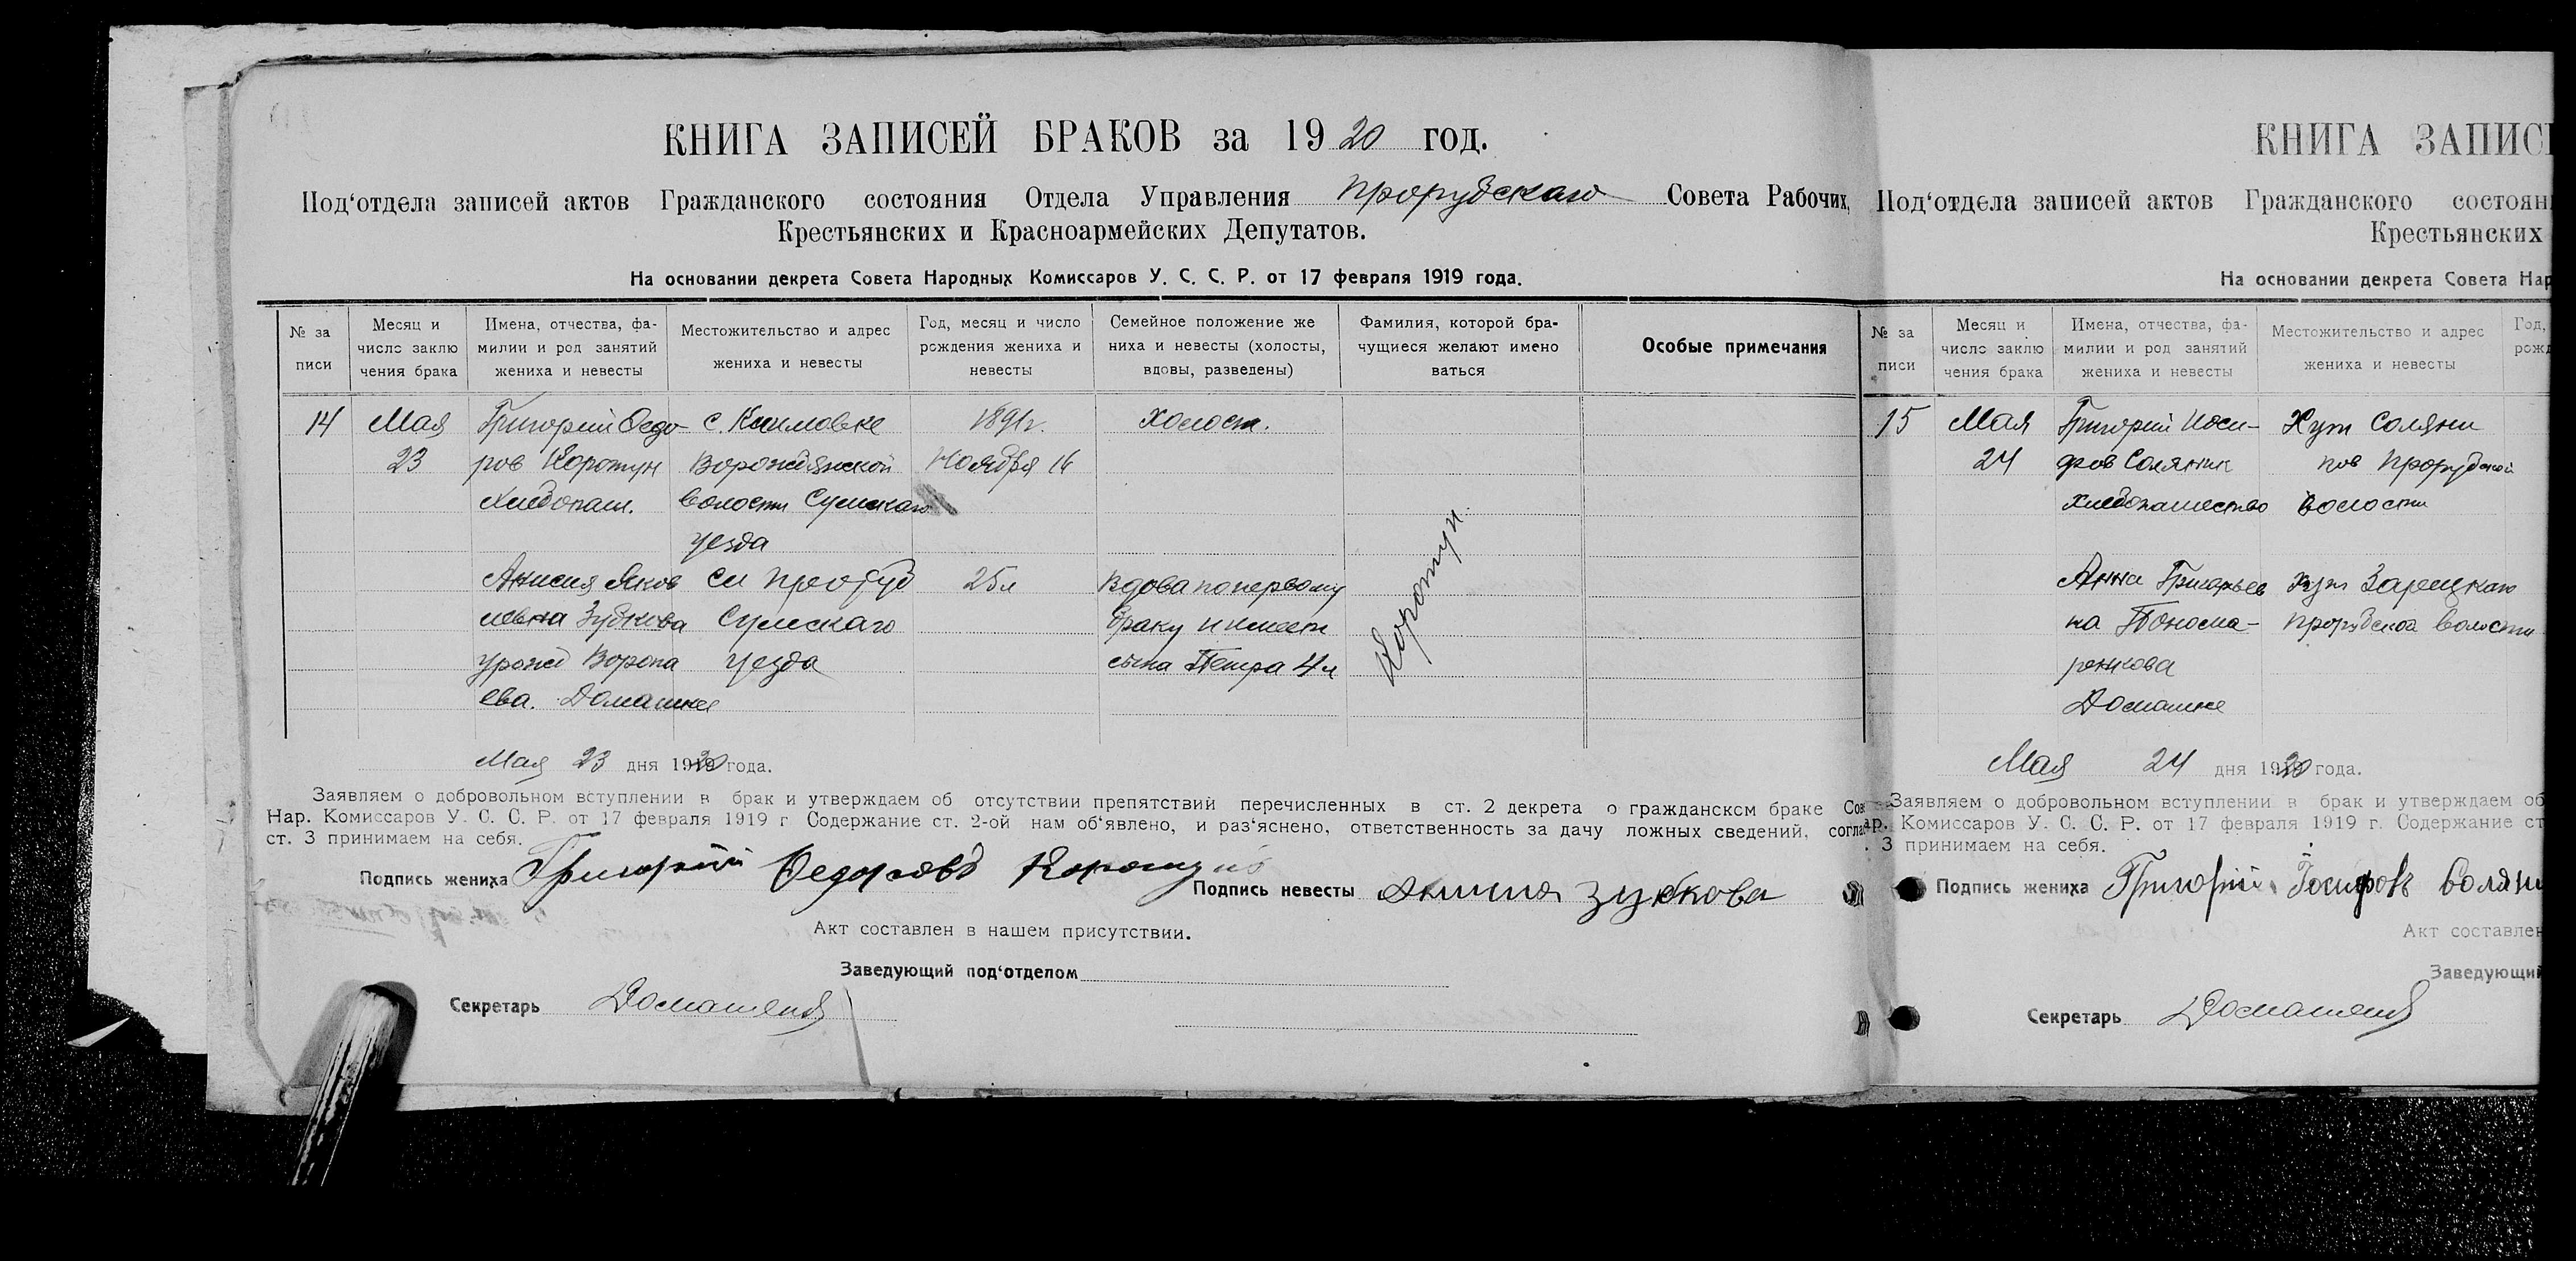 КНИГА ЗАПИСЕЙ БРАКОВ за 1920 год.
Под‘отдела записей актов Гражданского состояния Отдела Управления Прорубскаго Совета Рабочих,
Крестьянских и Красноармейских Депутатов.
На основании декрета Совета Народных Комиссаров У. С. С. Р. от 17 февраля 1919 года.
№ за писи
Месяц и число заклю чения брака
Имена, отчества, фа- милии и род занятий жениха и невесты
Местожительство и адрес жениха и невесты
Год, месяц и число рождения жениха и невесты
Семейное положение же ниха и невесты (холосты, вдовы, разведены)
Фамилия, которой бра- чущиеся желают имено ваться
Особые примечания
14 Мая Григорий Федо- с. Климовке 1891г. Холост.
23 ров Коротун Ворожбянской Ноября 16
Хлебопаш. волости Сумскаго
уезда
Акисия Яков см Проруб 25л Вдова по первому
левна Зубкова Сумскаго браку имеет
урожд Воропа уезда сына Петра 4л
ева. Домашнее
Коротун.
Мая 23 дня 1920 года.
Заявляем о добровольном вступлении в брак и утверждаем об отсутствии препятствий перечисленных в ст. 2 декрета о гражданском браке Сов
Нар. Комиссаров У. С. С. Р. от 17 февраля 1919 г Содержание ст. 2-ой нам об‘явлено, и раз‘яснено, ответственность за дачу ложных сведений, соглас
ст. 3 принимаем на себя.
Подпись жениха Григорий Федоровъ Коротунъ Подпись невесты Зубкова
Акт составлен в нашем присутствии.
Заведующий под‘отделом
Секретарь
КНИГА ЗАПИС
Под‘отдела записей актов Гражданского состоян
Крестьянских
На основании декрета Совета Нар
№ за писи
Месяц и число заклю чения брака
Имена, отчества, фа- милии и род занятий жениха и невесты
Местожительство и адрес жениха и невесты
Год, рожд
15 Мая Григорий Иоси- Хут Соляни
24 фов Соляник ков Прорубской
хлебопашество волости
Анна Григорьев Хут Зарецкаго
на Понома- Прорубской волости
ренкова
Домашнее
Мая 24 дня 1920 года.
Заявляем о добровольном вступлении в брак и утверждаем об
ар. Комиссаров У. С. С. Р. от 17 февраля 1919 г. Содержание ст
. 3 принимаем на себя.
Подпись жениха Григорий Iосифовъ Соляни
Акт составлен
Заведующий
Секретарь